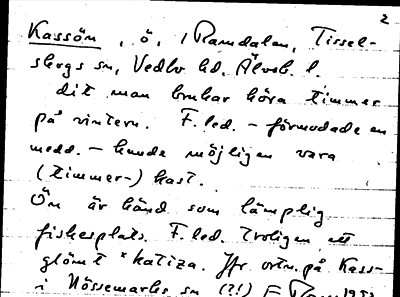 2
Kassön, ö, i Ramdalen, Tissel-
skogs sn, Vedbo hd. Älvsb. l.
dit man brukar köra timmer
på vintern. F. led. - förmodade en
medd. - kunde möjligen vara
(timmer-) kast.
Ön är känd som lämplig
fiskesplats. F. led. troligen ett
glömt *katiza. Jfr ortn. på Kass-
i Nössemarks sn (?!)